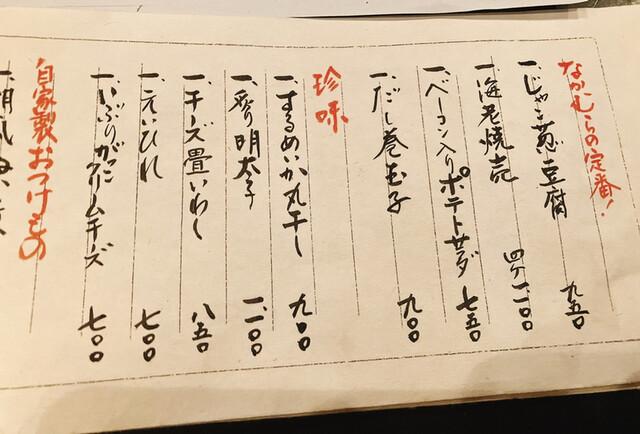 なかむらの定番!
一、じゃこ葱豆腐 九五〇
一、海老焼売 四ケ 一、一〇〇
一、ベーコン入りポテトサラダ 七五〇
一、だし巻玉子 九〇〇
珍味
一、するめいか丸干し 九〇〇
一、炙り明太子 一、一〇〇
一、チーズ畳いわし 八五〇
一、えいひれ 七〇〇
一、いぶりがっこクリームチーズ 七〇〇
自家製おつけもの